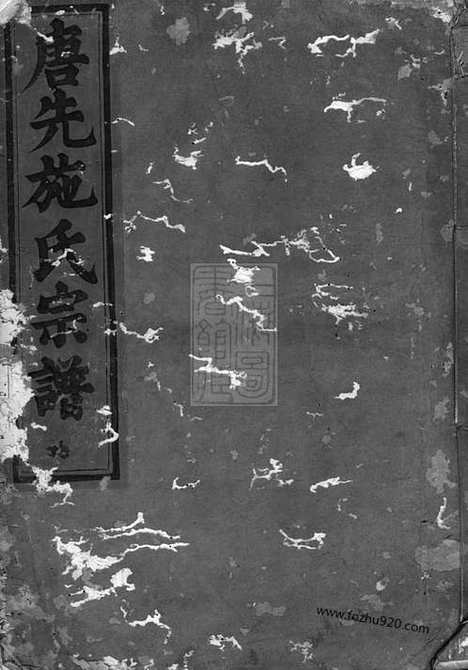 唐先施氏宗譜
www.fozhu920.com